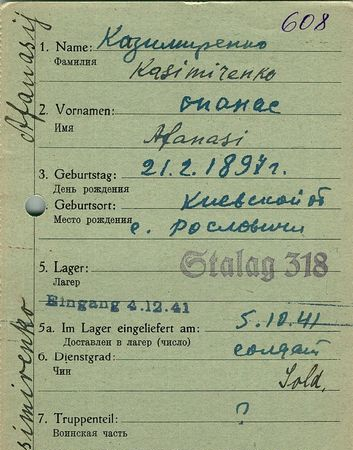 608
1. Name: Казимиренко
Фамилия Kasimirenko
2. Vornamen: опанас
Имя Afanasi
3. Geburtstag: 21.2.1897г.
День рождения
4. Geburtsort: Киевской об
Место рождения с. Рословичи
5. Lager: Stalag 318
Лагер
Eingang 4.12.41
5a. Im Lager eingeliefert am: 5.10.41
Доставлен в лагер (число)
6. Dienstgrad: солдат
Чин Sold.
7. Truppenteil: ?
Воинская часть
Afanasij
simirenko